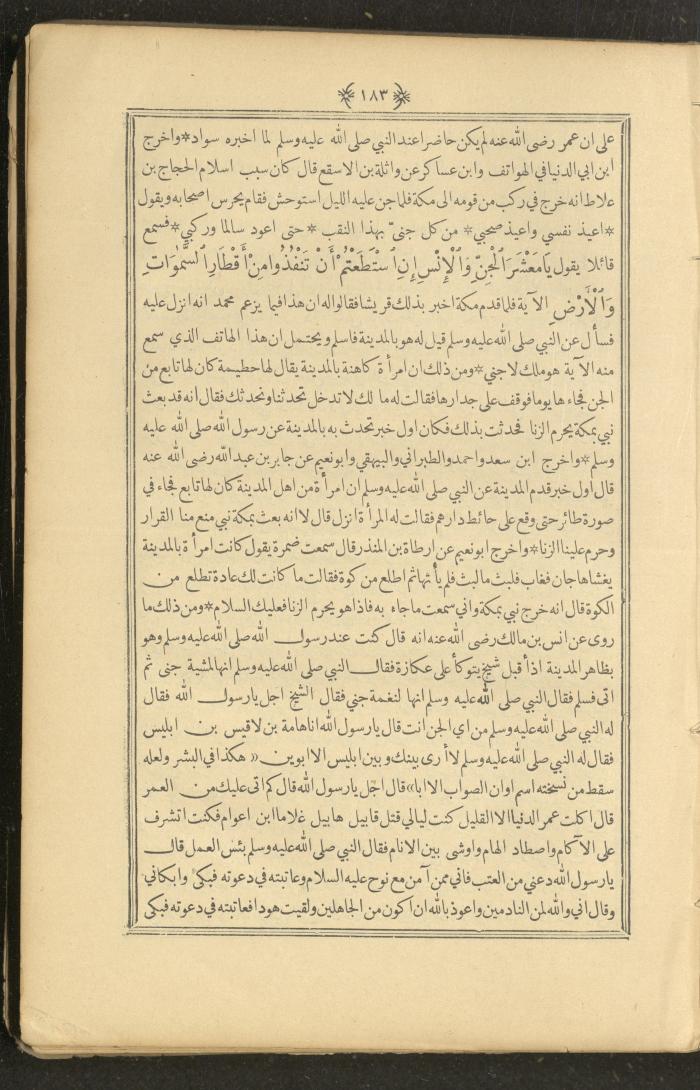 ١٨٣
على ان عمر رضى الله عنه لم يكن حاضرا عند النبي صلى الله عليه وسلم لما اخبره سواد*واخرج
ابن ابي الدنيا في الهواتف وابن عساكر عن واثلة بن الاسقع قال كان سبب اسلام الحجاج بن
علاط انه خرج في ركب من قومه الى مكة فلما جن عليه الليل استوحش فقام يحرس اصحابه ويقول
*اعيذ نفسي واعيذ صحبي* من كل جنيّ بهذا النقب *حتى اعود سالما وركبي*فسمع
قائلا يقول يَا مَعْشَرَ الْجِنِّ وَالْإِنْسِ إِنِ اسْتَطَعْتُمْ أَنْ تَنْفُذُوا مِنْ أَقْطَارِ السَّمٰوَاتِ
وَالْأَرْضِ الآية فلما قدم مكة اخبر بذلك قريشا فقالوا له ان هذا فيما يزعم محمد انه انزل عليه
فسأل عن النبي صلى الله عليه وسلم قيل له هو بالمدينة فاسلم ويحتمل ان هذا الهاتف الذي سمع
منه الآية هو ملك لا جني*ومن ذلك ان امرأة كاهنة بالمدينة يقال لها حطيمة كان لها تابع من
الجن فجاءها يوما فوقف على جدارها فقالت له ما لك لا تدخل تحدثنا ونحدثك فقال انه قد بعث
نبي بمكة يحرم الزنا فحدثت بذلك فكان اول خبر تحدث به بالمدينة عن رسول الله صلى الله عليه
وسلم*واخرج ابن سعد واحمد والطبراني والبيهقي وابو نعيم عن جابر بن عبد الله رضى الله عنه
قال اول خبر قدم المدينة عن النبي صلى الله عليه وسلم ان امرأة من اهل المدينة كان لها تابع فجاء في
صورة طائر حتى وقع على حائط دارهم فقالت له المرأة انزل قال لا انه بعث بمكة نبي منع منا القرار
وحرم علينا الزنا*واخرج ابو نعيم عن ارطاة بن المنذر قال سمعت ضمرة يقول كانت امرأة بالمدينة
يغشاها جان فغاب فلبث ما لبث فلم يأتها ثم اطلع من كوة فقالت ما كانت لك عادة تطلع من
الكوة قال انه خرج نبي بمكة واني سمعت ما جاء به فاذا هو يحرم الزنا فعليك السلام*ومن ذلك ما
روى عن انس بن مالك رضى الله عنه انه قال كنت عند رسول الله صلى الله عليه وسلم وهو
بظاهر المدينة اذ أقبل شيخ يتوكأ على عكازة فقال النبي صلى الله عليه وسلم انها لمشية جنى ثم
اتى فسلم فقال النبي صلى الله عليه وسلم انها لنغمة جني فقال الشيخ اجل يا رسول الله فقال
له النبي صلى الله عليه وسلم من اي الجن انت قال يا رسول الله انا هامة بن لاقيس بن ابليس
فقال له النبي صلى الله عليه وسلم لا أرى بينك وبين ابليس الا ابوين «هكذا في البشر ولعله
سقط من نسخته اسم او ان الصواب الا ابا» قال اجل يا رسول الله قال كم اتى عليك من العمر
قال اكلت عمر الدنيا الا القليل كنت ليالي قتل قابيل هابيل غلاما ابن اعوام فكنت اتشرف
على الآكام واصطاد الهام واوشى بين الانام فقال النبي صلى الله عليه وسلم بئس العمل قال
يا رسول الله دعني من العتب فاني ممن آمن مع نوح عليه السلام وعاتبته في دعوته فبكى وابكاني
وقال اني والله لمن النادمين واعوذ بالله ان اكون من الجاهلين ولقيت هودا فعاتبته في دعوته فبكى